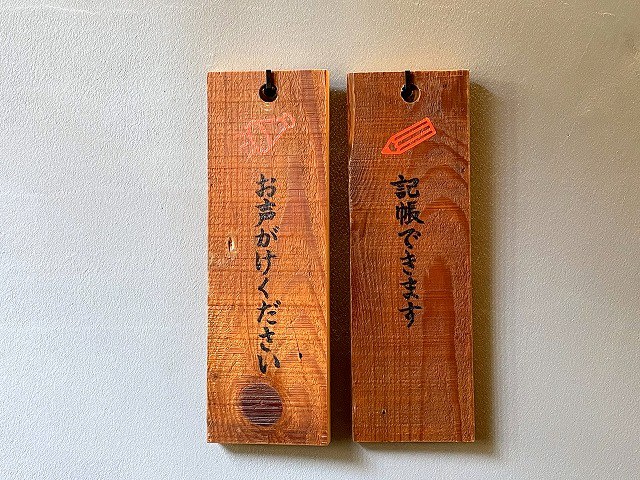 記帳できます
お声がけください